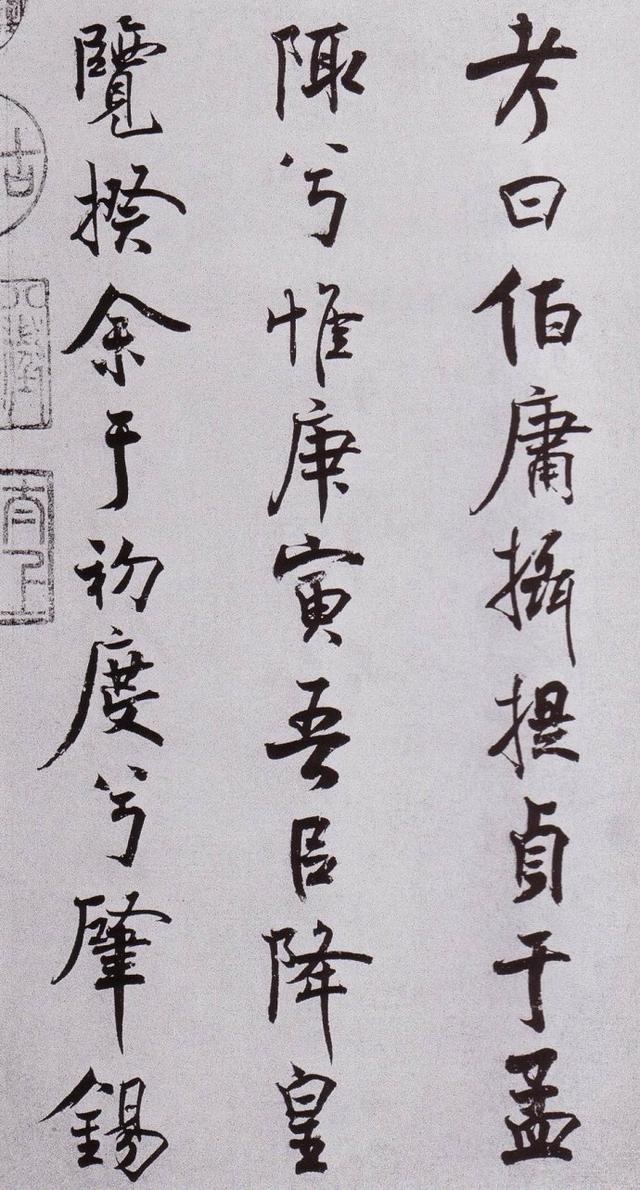 考曰伯庸攝提貞于孟
陬兮惟庚寅吾㠯降皇
覽揆余于初度兮肇錫
古